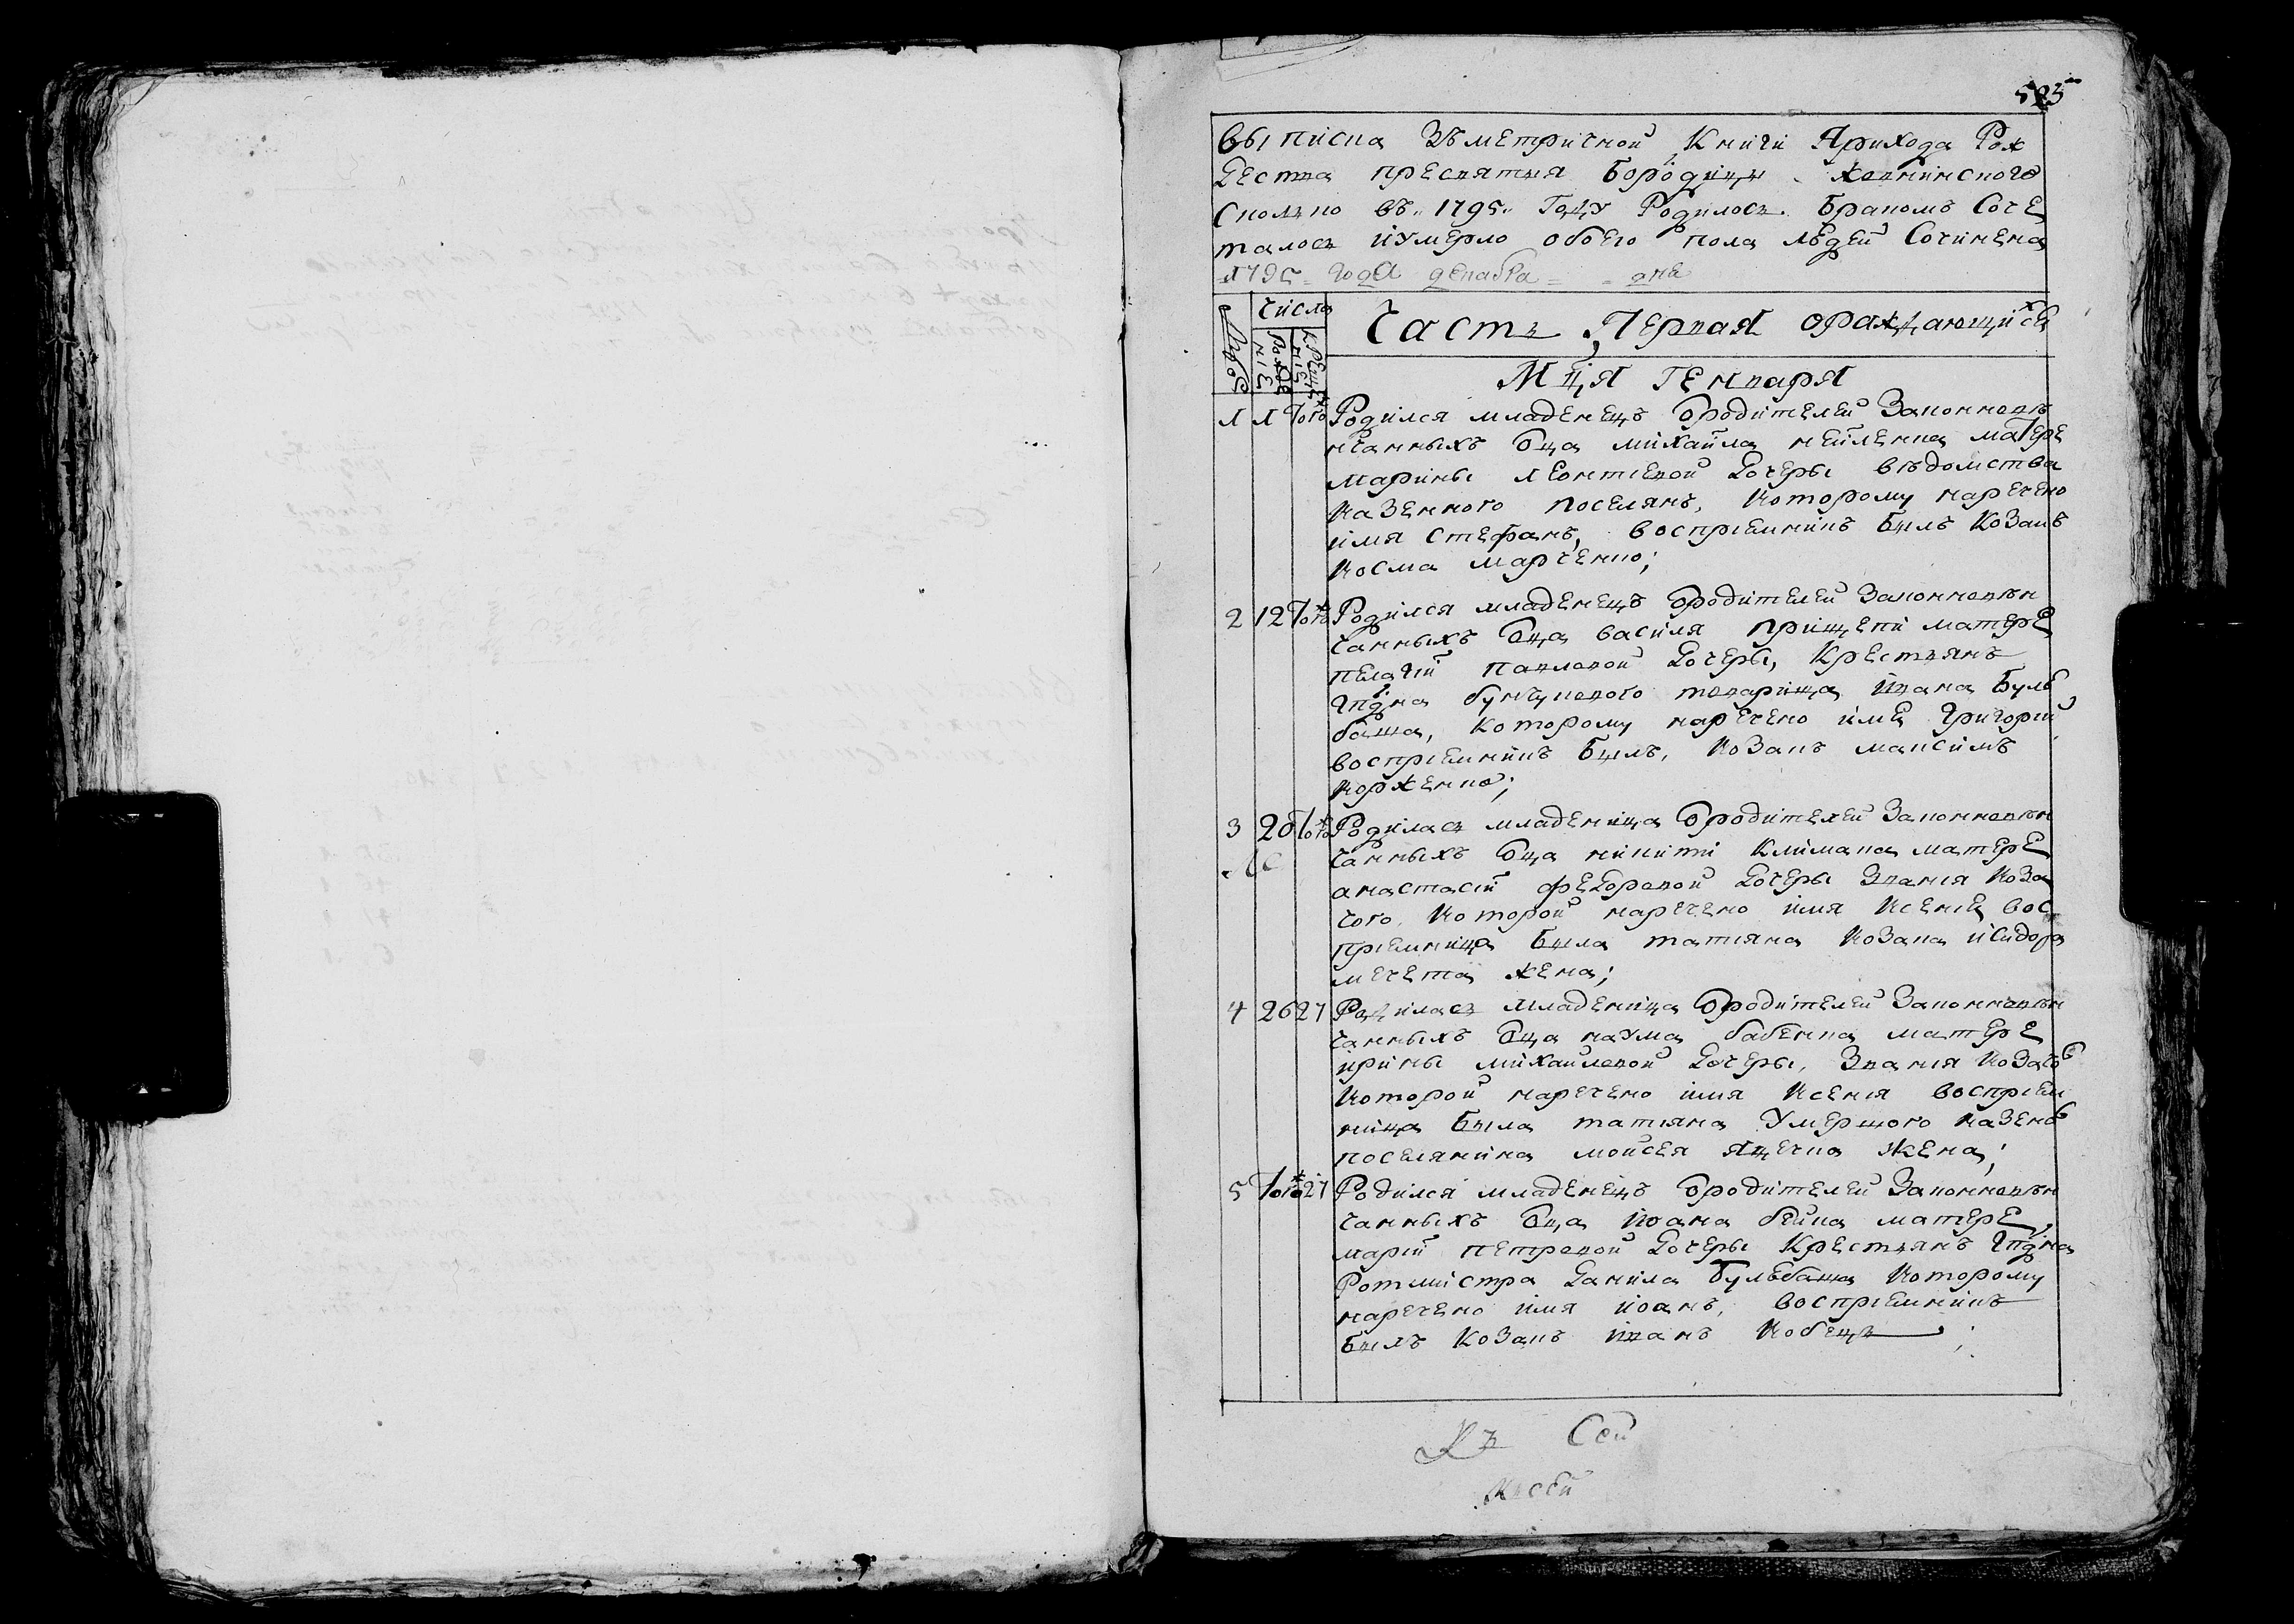 523
Выписка Зъметричной Книги Прихода Рож
Дества пресвятия Богородици
Сколко въ 1795 Году Родилось Браком Соче
талось иУмерло обоего пола людей Сочинена
1795 года декабра дня
Число
Рожденіе
Крещеніе
Часть Первая ораждающихся
Мця Генваря
1 1 тогож Родился младенецъ ѿродителей Законновѣ
нчанныхъ ѿца михаила нейленка матере
марины леонтиевой дочеры вѣдомства
казенного поселянъ, которому наречено
имя стефанъ, восприемникъ билъ Козакъ
косма марченко;
2 12 тогож Родился младенецъ ѿродителей Законновѣн
чанныхъ ѿца василя прищепи матере
пелагии павловой дочеры, Крестьянъ
гпдна бунчукового товарища ивана Буль
баша, Которому наречено имя Григорий
восприемникъ билъ, козакъ максимъ
корженко;
3 20 тогож Родилась младеница ѿродителей Законновѣн
чанныхъ ѿца никити климака матере
анастасий федоровой дочеры Звания коза
чого, которой наречено имя ксения вос
приемница била татияна козака исидора
мечета жена;
4 26 27 Родилась младеница ѿродителей Законновѣн
чанныхъ ѿца наума бабенка матере
ирины михайловой дочеры, Звания козачо
которой наречено имя ксения восприем
ница была татияна Умершого казено
поселянина мойсея яценка жена;
5 тогож 27 Родился младенецъ ѿродителей Законновѣн
чанныхъ ѿца иоана бейка матере
марий петровой дочеры Крестьянъ гпдна
Ротмистра данила Бульбаша которому
наречено имя иоанъ, восприемникъ
билъ Козакъ иванъ кобець;
Къ Сей